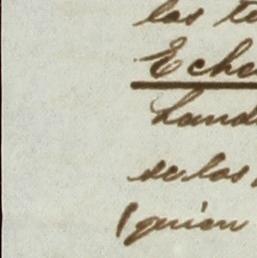 las te
Eche
Land
se las
(quien